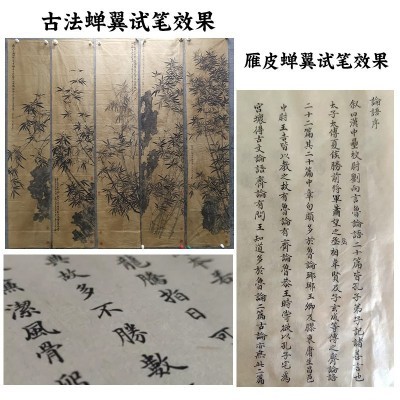 古法蝉翼试笔效果
雁皮蝉翼试笔效果
論語序
叙曰漢中壘校尉劉向言魯論語二十篇皆孔子弟子記諸善言也
太子太傅夏侯勝前將軍蕭望之丞相韋賢及子玄成等傳之齊論語
二十二篇其二十篇中章句頗多於魯論琅琊王卿及膠東庸生昌邑
中尉王吉皆以教之故有魯論有齊論魯恭王時嘗欲以孔子宅為
宮壞得古文論語齊論有問王知道多於魯論二篇古論亦無此二篇
龍騰指日可
故多不勝數
潔風骨